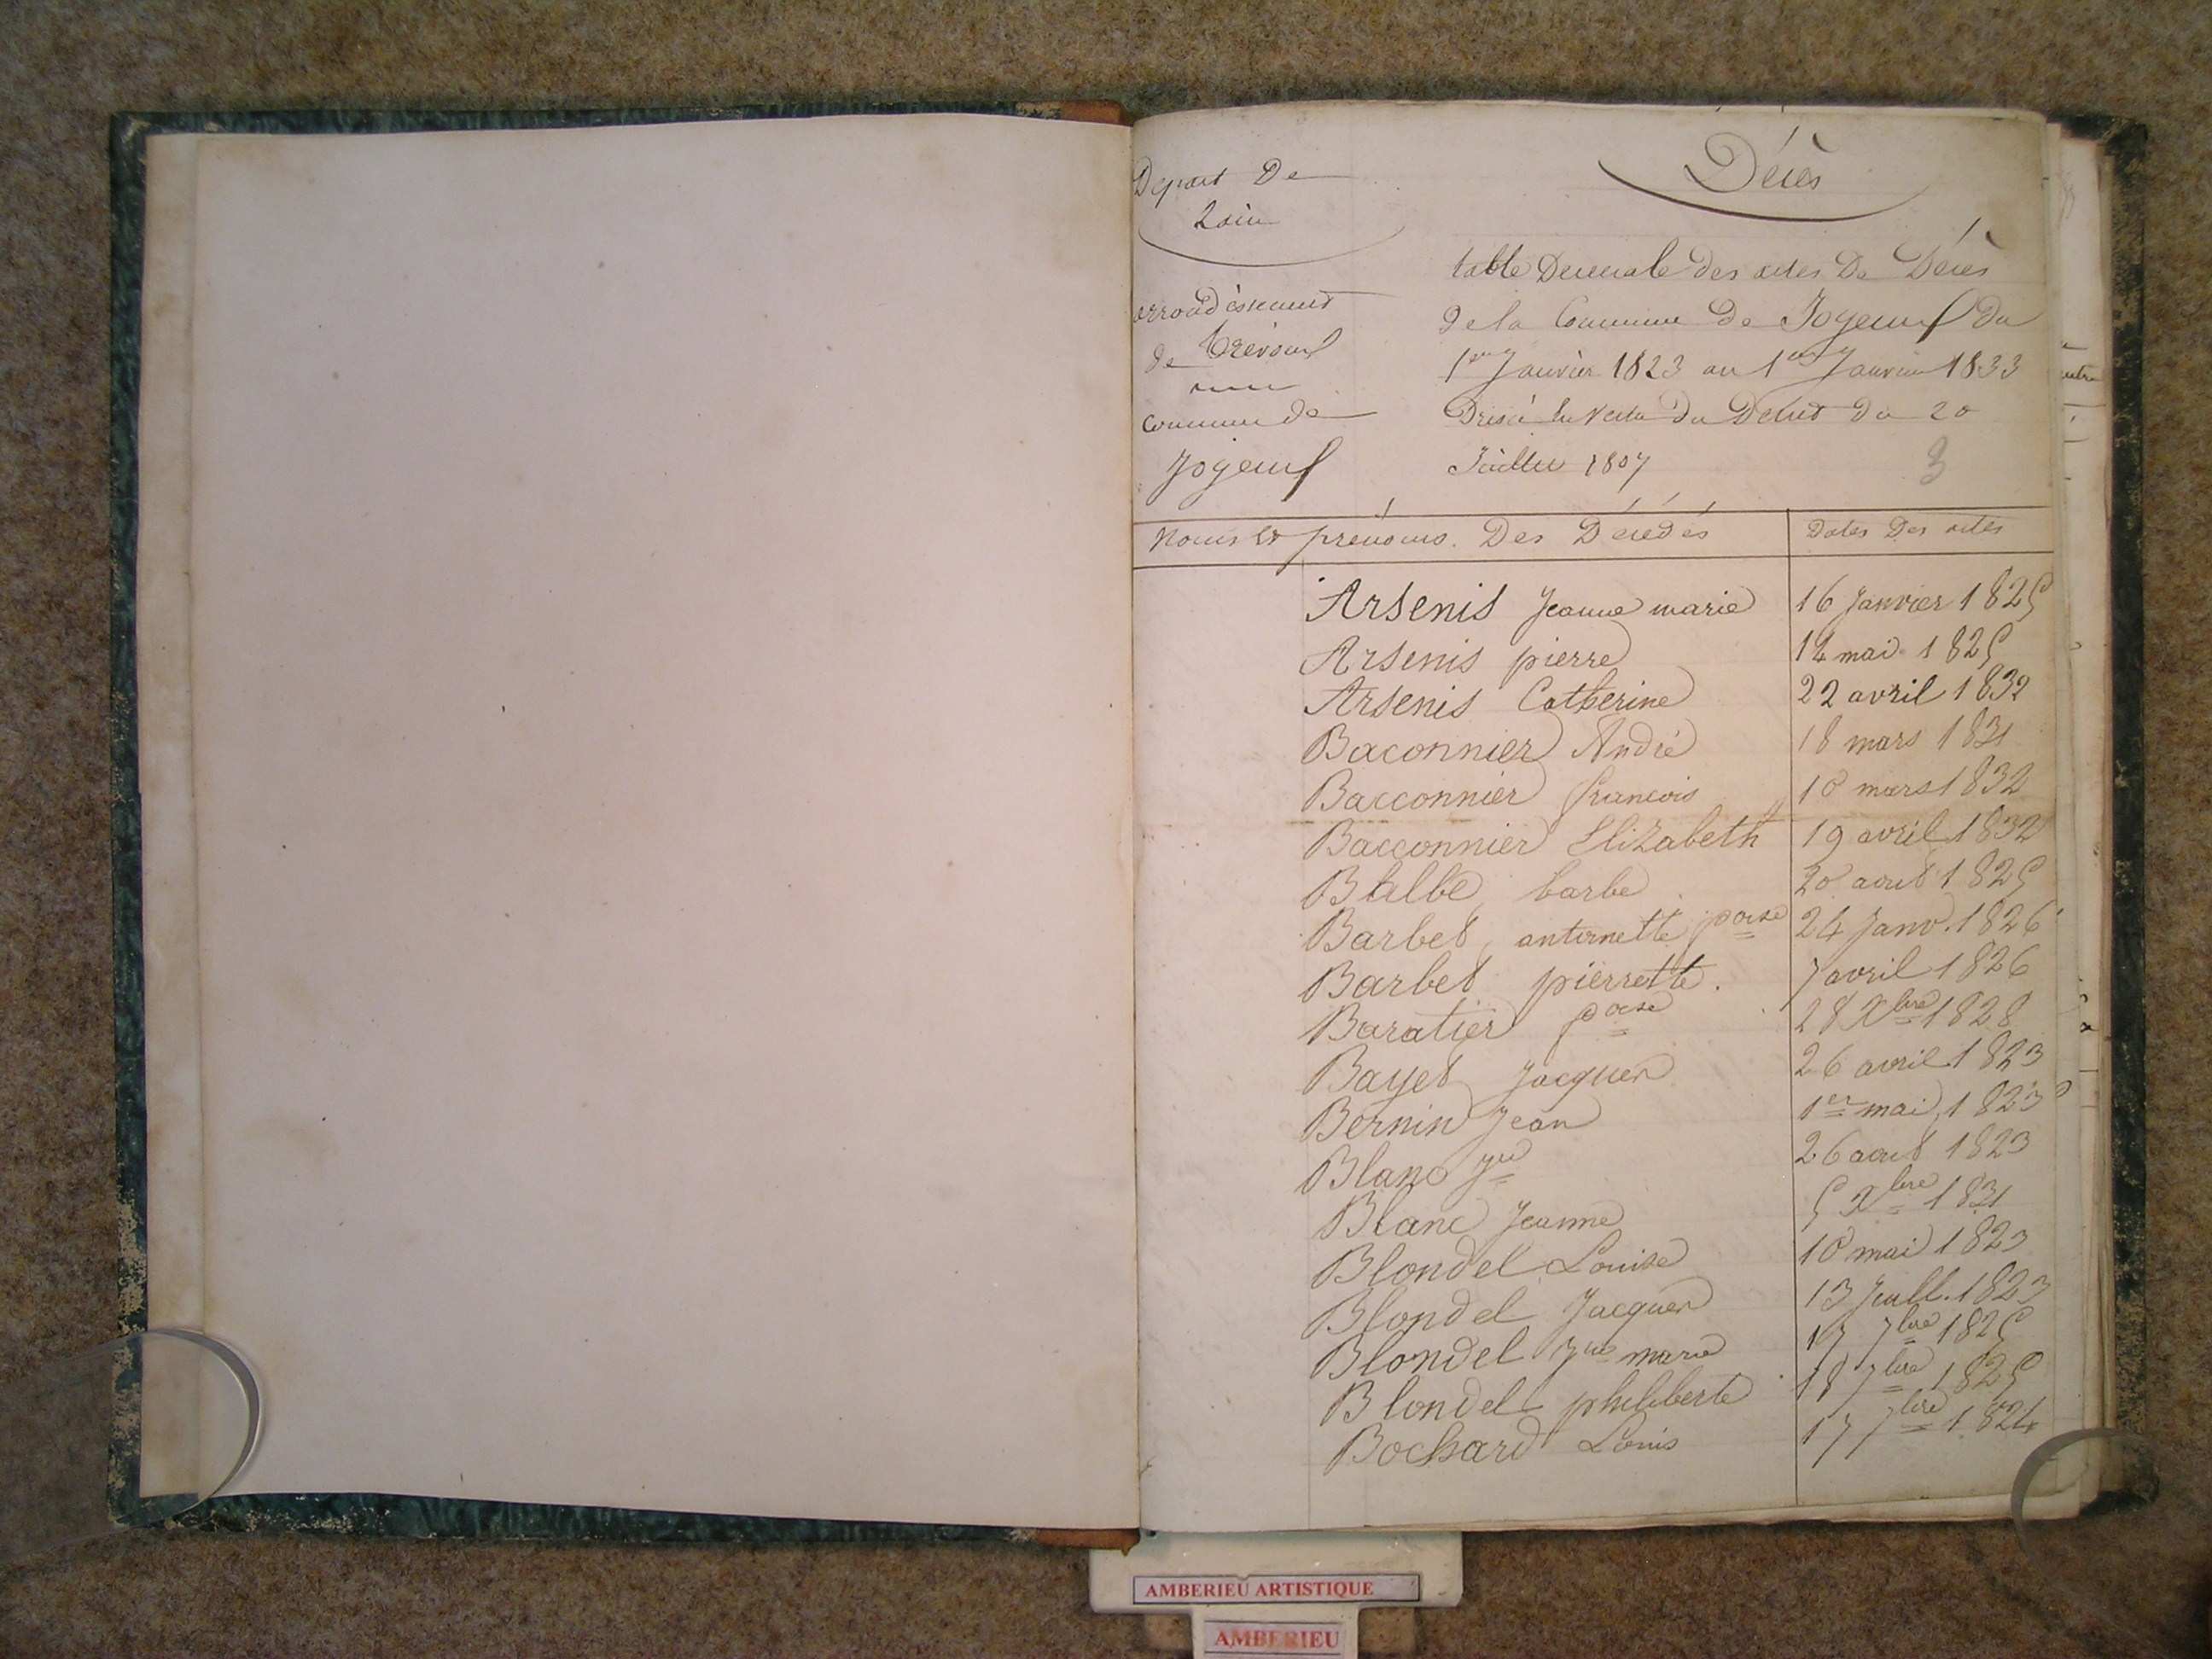 Départ De
Lain
arrondissement
de trevoux
commune de
Joyeux
Décès
table Decenale des actes De Décès
de la Commune de Joyeux Du
1er Janvier 1823 au 1er Janvier 1833
Du Decret Du 20
Juillet 1807
3
Noms et prénoms Des Décédés
Dates Des actes
Arsenis Jeanne marie 16 Janvier 1825
Arsenis pierre 14 mai 1825
Arsenis Catherine 22 avril 1832
Baconnier André 18 mars 1831
Bacconnier francois 10 mars 1832
Bacconnier Elizabeth 19 avril 1832
Balbe barbe 20 aout 1825
Barbet antoinette 24 Janv. 1826
Barbet pierrette. 7 avril 1826
Baratier 28 Xbre 1828
Bayet Jacques 26 avril 1823
Bernin Jean 1er mai 1823
Blanc 26 aout 1823
Blanc Jeanne 5 Xbre 1831
Blondel Louise 10 mai 1823
Blondel Jacques 13 Juill. 1823
Blondel marie 17 7bre 1825
Blondel philiberte 18 7bre 1825
Bochard Louis 17 7bre 1824
AMBERIEU ARTISTIQUE
AMBERIEU